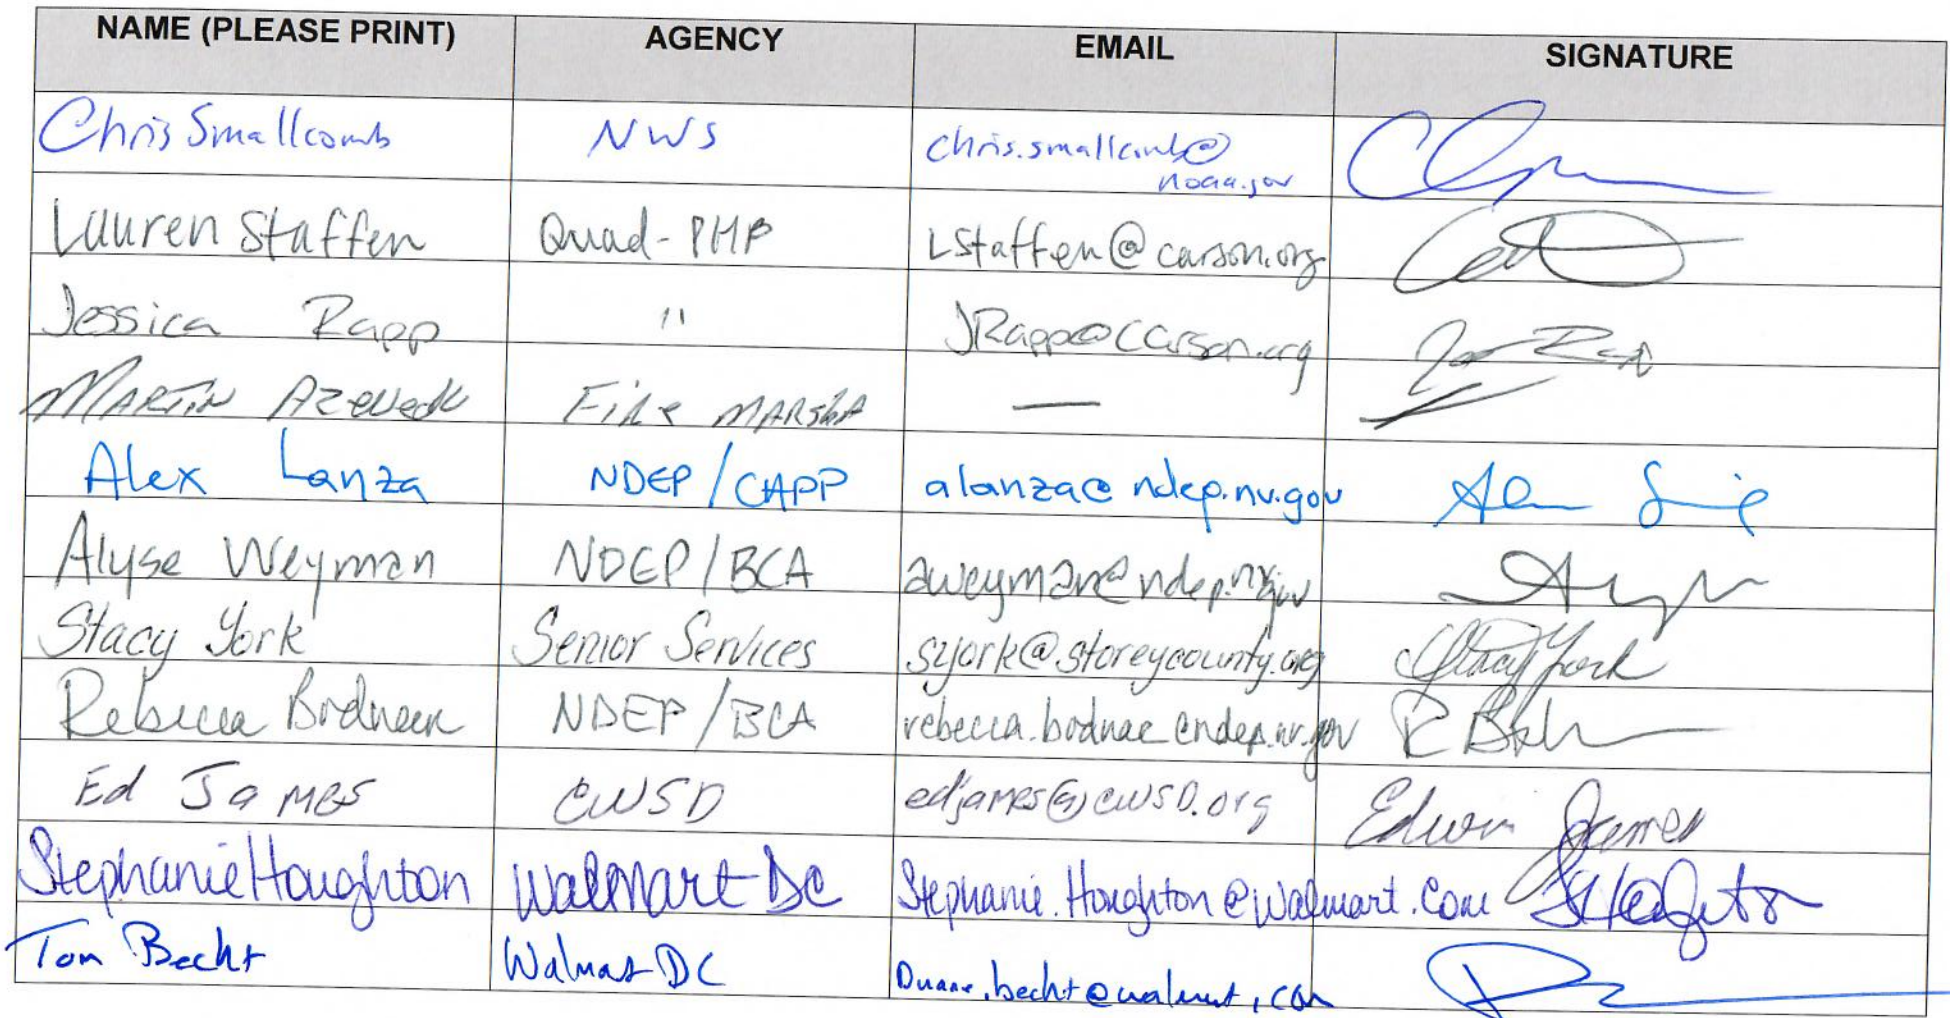 NAME (PLEASE PRINT) AGENCY EMAIL SIGNATURE
Chris Smallcomb NWS chris.smallcomb@
noaa.gov
Lauren Staffen Quad-PHP LStaffen@carson.org
Jessica Rapp " JRapp@carson.org
MARTIN AZEVEDO FIRE MARSHA —
Alex Lanza NDEP/CAPP alanza@ndep.nv.gov
Alyse Weyman NDEP/BCA aweyman@ndep.nv.gov
Stacy York Senior Services syork@storeycounty.org Stacy York
Rebecca Bodnar NDEP/BCA rebecca.bodnar@ndep.nv.gov
Ed James CWSD edjames@CWSD.org Edwin James
Stephanie Houghton Walmart DC Stephanie.Houghton@Walmart.com
Tom Becht Walmart DC Duane.becht@walmart.com